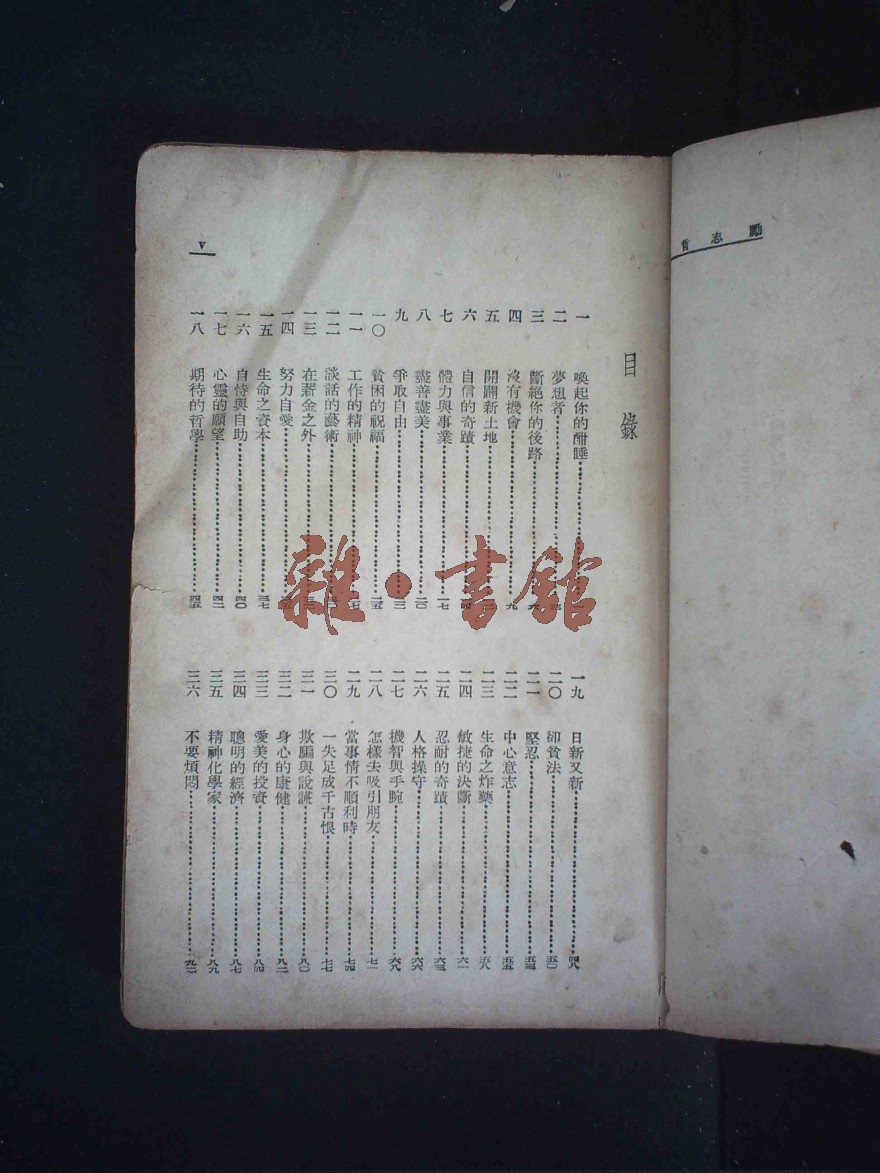 勵志哲
目錄
一 喚起你的酣睡
二 夢想者
三 斷絕你的後路
四 沒有機會 九
五 開闢新土地
六 自信的奇蹟
七 體力與事業 一七
八 盡善盡美 二〇
九 爭取自由
一〇 貧困的祝福
一一 工作的精神
一二 談話的藝術
一三 在薪金之外
一四 努力自愛
一五 生命之資本 三七
一六 自恃與自助 四〇
一七 心靈的願望 四二
一八 期待的哲學 四五
一九 日新又新 四八
二〇 卻貧法 五〇
二一 堅忍 五三
二二 中心意志 五五
二三 生命之炸藥 五八
二四 敏捷的決斷 六一
二五 忍耐的奇蹟 六三
二六 人格操守 六六
二七 機智與手腕 六八
二八 怎樣去吸引朋友 七一
二九 當事情不順利時 七四
三〇 一失足成千古恨 七七
三一 欺騙與說謊 八〇
三二 身心的康健 八二
三三 愛美的投資 八四
三四 聰明的經濟 八七
三五 精神化學家 八九
三六 不要煩悶 九二
V
雜·書館